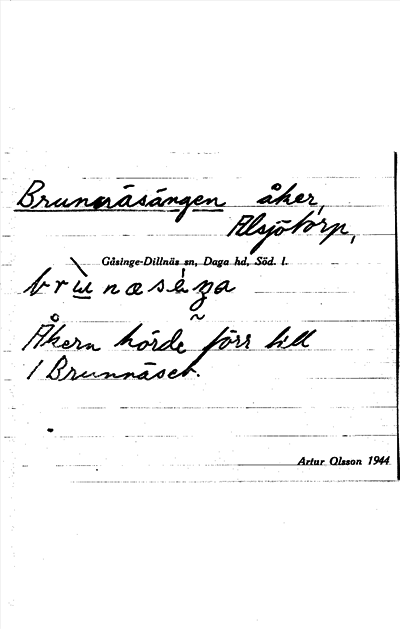 Brunnäsängen åker,
Alsjötorp,
Gåsinge-Dillnäs sn, Daga hd, Söd. l.
Åkern hörde förr till
1 Brunnäset.
Artur Olsson 1944